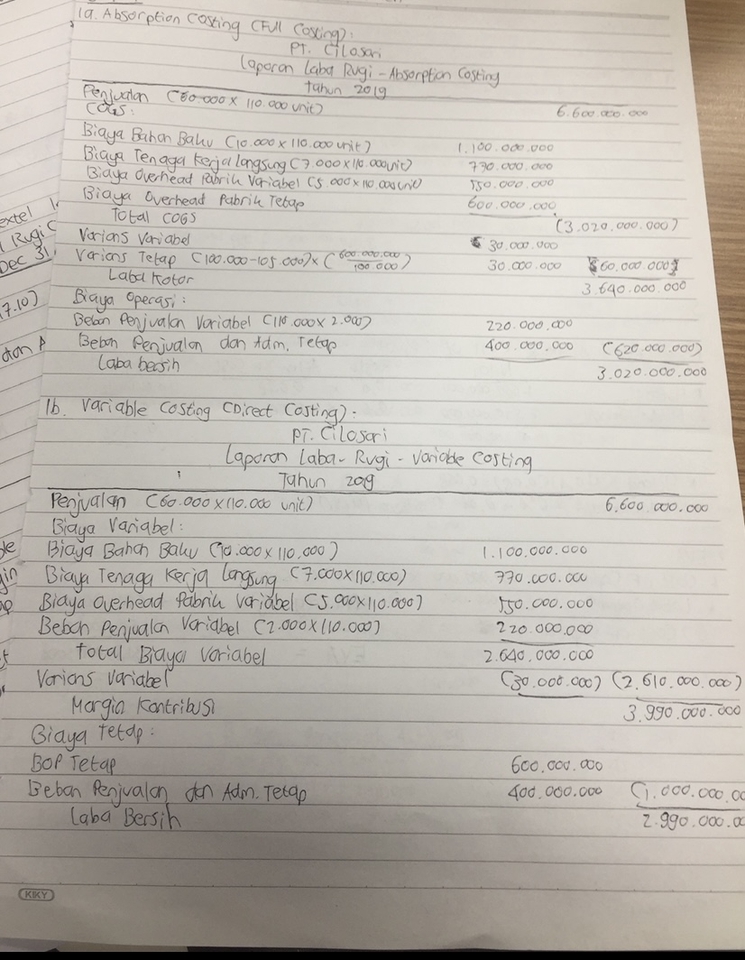 1a. Absorption Costing (Full Costing):
PT. Cilosari
Laporan Laba Rugi - Absorption Costing
tahun 2019
Penjualan (60.000 X 110.000 unit) 6.600.000.000
COGS:
Biaya Bahan Baku (10.000 x 110.000 unit) 1.100.000.000
Biaya Tenaga Kerja Langsung (7.000 x 110.000 unit) 770.000.000
Biaya Overhead Pabrik Variabel (5.000 x 110.000 unit) 550.000.000
Biaya Overhead Pabrik Tetap 600.000.000
Total COGS (3.020.000.000)
Varians Variabel 30.000.000
Varians Tetap (100.000-105.000) x (600.000.000/100.000) 30.000.000 60.000.000
Laba Kotor 3.640.000.000
Biaya Operasi:
Beban Penjualan Variabel (110.000 x 2.000) 220.000.000
Beban Penjualan dan Adm. Tetap 400.000.000 (620.000.000)
Laba bersih 3.020.000.000
1b. Variable Costing (Direct Costing).
PT. Cilosari
Laporan Laba-Rugi - Variable Costing
Tahun 2019
Penjualan (60.000 X 110.000 unit) 6.600.000.000
Biaya Variabel:
Biaya Bahan Baku (10.000 x 110.000) 1.100.000.000
Biaya Tenaga Kerja Langsung (7.000 x 110.000) 770.000.000
Biaya Overhead Pabrik Variabel (5.000 x 110.000) 550.000.000
Beban Penjualan Variabel (2.000 x 110.000) 220.000.000
Total Biaya Variabel 2.640.000.000
Varians Variabel (30.000.000) (2.610.000.000)
Margin Kontribusi 3.990.000.000
Biaya Tetap:
BOP Tetap 600.000.000
Beban Penjualan dan Adm. Tetap 400.000.000 (1.000.000.00
Laba Bersih 2.990.000.00
KIKY
extel
Rugi C
Dec 31,
17.10)
dan A